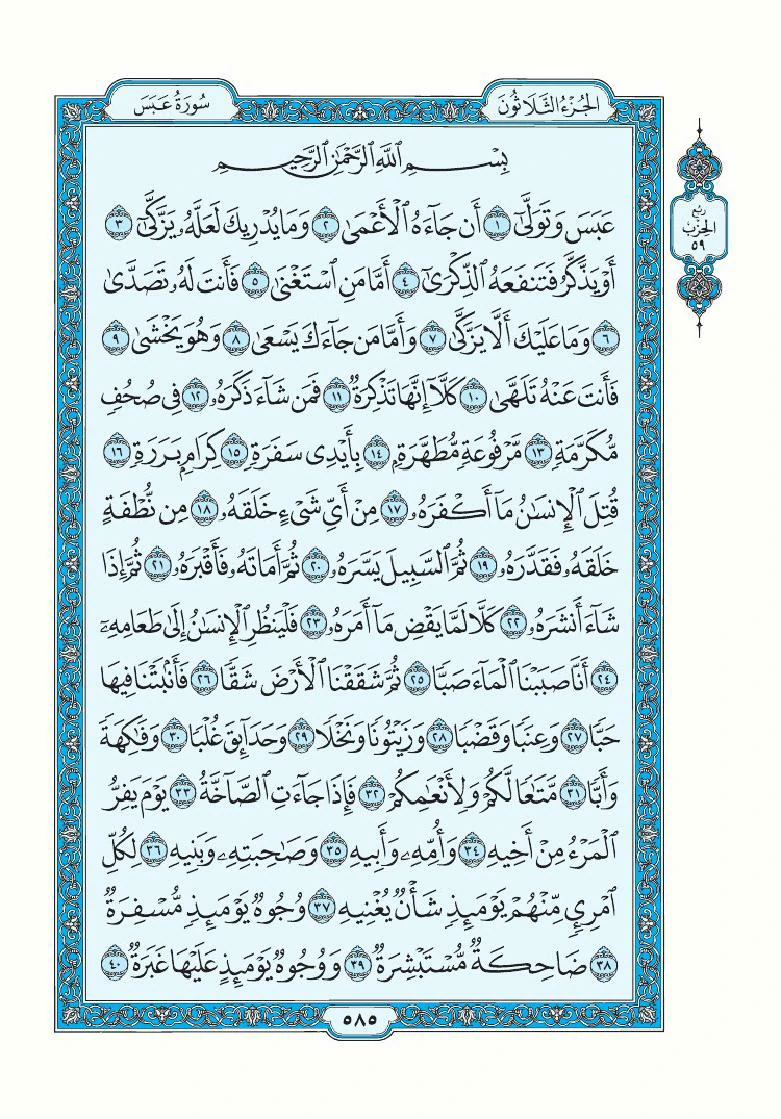 سُورَةُ عَبَسَ
الجُزْءُ الثَّلَاثُونَ
بِسْمِ ٱللَّهِ ٱلرَّحْمَٰنِ ٱلرَّحِيمِ
عَبَسَ وَتَوَلَّىٰٓ ١ أَن جَآءَهُ ٱلْأَعْمَىٰ ٢ وَمَا يُدْرِيكَ لَعَلَّهُۥ يَزَّكَّىٰٓ ٣
أَوْ يَذَّكَّرُ فَتَنفَعَهُ ٱلذِّكْرَىٰٓ ٤ أَمَّا مَنِ ٱسْتَغْنَىٰ ٥ فَأَنتَ لَهُۥ تَصَدَّىٰ
٦ وَمَا عَلَيْكَ أَلَّا يَزَّكَّىٰ ٧ وَأَمَّا مَن جَآءَكَ يَسْعَىٰ ٨ وَهُوَ يَخْشَىٰ ٩
فَأَنتَ عَنْهُ تَلَهَّىٰ ١٠ كَلَّآ إِنَّهَا تَذْكِرَةٌ ١١ فَمَن شَآءَ ذَكَرَهُۥ ١٢ فِي صُحُفٍ
مُّكَرَّمَةٍ ١٣ مَّرْفُوعَةٍ مُّطَهَّرَةٍۭ ١٤ بِأَيْدِي سَفَرَةٍ ١٥ كِرَامٍۭ بَرَرَةٍ ١٦
قُتِلَ ٱلْإِنسَٰنُ مَآ أَكْفَرَهُۥ ١٧ مِنْ أَيِّ شَيْءٍ خَلَقَهُۥ ١٨ مِن نُّطْفَةٍ
خَلَقَهُۥ فَقَدَّرَهُۥ ١٩ ثُمَّ ٱلسَّبِيلَ يَسَّرَهُۥ ٢٠ ثُمَّ أَمَاتَهُۥ فَأَقْبَرَهُۥ ٢١ ثُمَّ إِذَا
شَآءَ أَنشَرَهُۥ ٢٢ كَلَّا لَمَّا يَقْضِ مَآ أَمَرَهُۥ ٢٣ فَلْيَنظُرِ ٱلْإِنسَٰنُ إِلَىٰ طَعَامِهِۦٓ
٢٤ أَنَّا صَبَبْنَا ٱلْمَآءَ صَبًّا ٢٥ ثُمَّ شَقَقْنَا ٱلْأَرْضَ شَقًّا ٢٦ فَأَنۢبَتْنَا فِيهَا
حَبًّا ٢٧ وَعِنَبًا وَقَضْبًا ٢٨ وَزَيْتُونًا وَنَخْلًا ٢٩ وَحَدَآئِقَ غُلْبًا ٣٠ وَفَٰكِهَةً
وَأَبًّا ٣١ مَّتَٰعًا لَّكُمْ وَلِأَنْعَٰمِكُمْ ٣٢ فَإِذَا جَآءَتِ ٱلصَّآخَّةُ ٣٣ يَوْمَ يَفِرُّ
ٱلْمَرْءُ مِنْ أَخِيهِ ٣٤ وَأُمِّهِۦ وَأَبِيهِ ٣٥ وَصَٰحِبَتِهِۦ وَبَنِيهِ ٣٦ لِكُلِّ
ٱمْرِيٍٕ مِّنْهُمْ يَوْمَئِذٍ شَأْنٌ يُغْنِيهِ ٣٧ وُجُوهٌ يَوْمَئِذٍ مُّسْفِرَةٌ
٣٨ ضَاحِكَةٌ مُّسْتَبْشِرَةٌ ٣٩ وَوُجُوهٌ يَوْمَئِذٍ عَلَيْهَا غَبَرَةٌ ٤٠
رُبع
الحِزْب
٥٩
٥٨٥